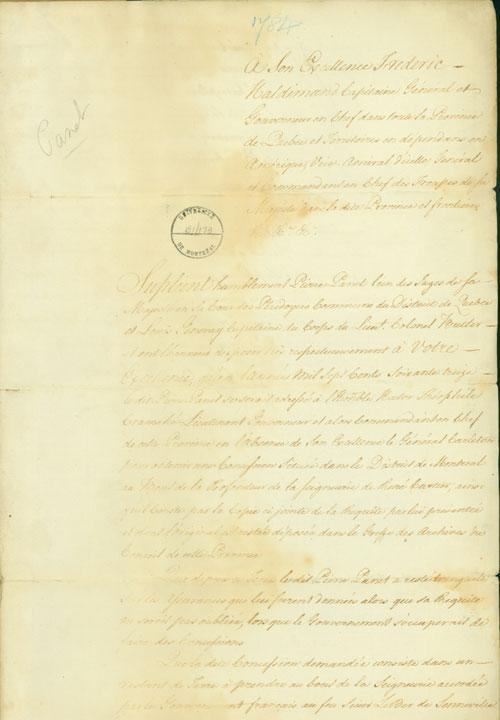 1784
Panet
A Son Excellence Frederic
Haldimand Capitaine Général et
Gouverneur en Chef dans toute la Province
de Quebec et Territoires en dependans en
Amérique, Vice Amiral d'icelle Général
et Commandant en Chef des Troupes de sa
Majesté dans la dite Province et frontieres
&c &c &c
UNIVERSITÉ
DE MONTRÉAL
Suplient humblement Pierre Panet l'un des Juges de sa
Majesté en la Cour des Plaidoyers Communs du District de Quebec
et Louis Capitaine du Corps du Lieut. Colonel Butler
et ont l'honneur d'exposer très respectueusement à Votre
Excellence, qu'en l'année Mil Sept Cents Soixante treize
le dit Pierre Panet se seroit adressé à l'Honble Hector Théophile
Cramahé Lieutenant Gouverneur et alors Commandant en Chef
de cette Province en l'absence de Son Excellence le Général Carleton
pour obtenir une Concession Située dans le District de Montreal
au bout de la Profondeur de la Seigneurie de René Cartier, ainsi
qu'il conste par la Copie ci jointe de la Requête par lui presentée
et dont l'original est resté déposé dans le Greffe des Archives du
Conseil de cette Province
Que depuis ce Tems le dit Pierre Panet a resté tranquille
sur les assurances qui lui furent données alors que sa Requête
ne seroit pas oubliée, lors que le Gouvernement s'occuperait de
faire des Concessions
Que la dite Concession demandée consiste dans un
restant de Terre à prendre au bout de la Seigneurie accordée
par le Gouvernement français au feu Sieur LeBer de Senneville